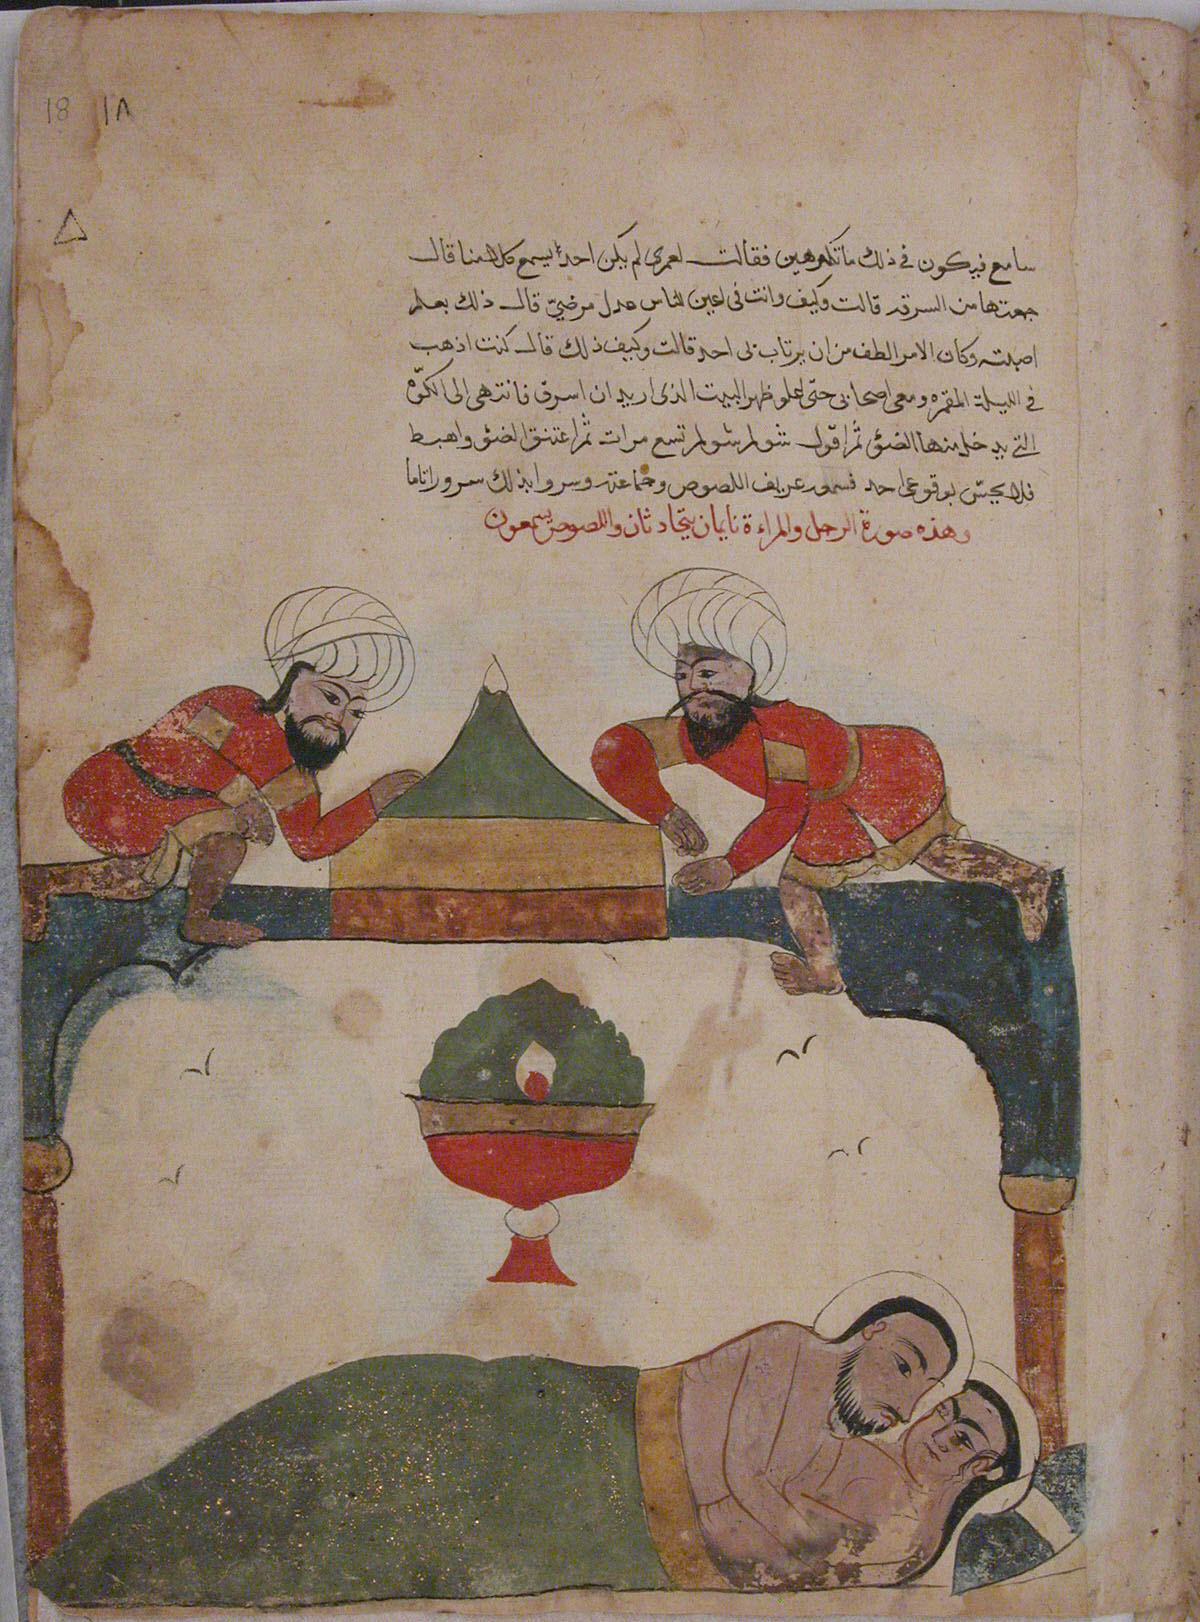 18 ١٨
سامع فيكون في ذلك ما تكرهين فقالت لعمري لم يكن احد يسمع كلامنا قال
جمعتها من السرقه قالت وكيف وانت في اعين الناس عدل مرضي قال ذلك بعلم
اصبته وكان الامر الطف من ان يرتاب بي احد قالت وكيف ذلك قال كنت اذهب
في الليلة المقمره ومعي اصحابي حتى اعلو ظهر البيت الذي اريد ان اسرق فانتهى الى الكوّه
التي يدخل منها الضوء ثم اقول شولم شولم تسع مرات ثم اعتنق الضوء واهبط
فلا يحس بوقوعي احد فسمع عريف اللصوص وجماعته وسروا بذلك سرورا تاما
وهذه صورة الرجل والمراءة نايمان يتحادثان واللصوص يسمعون